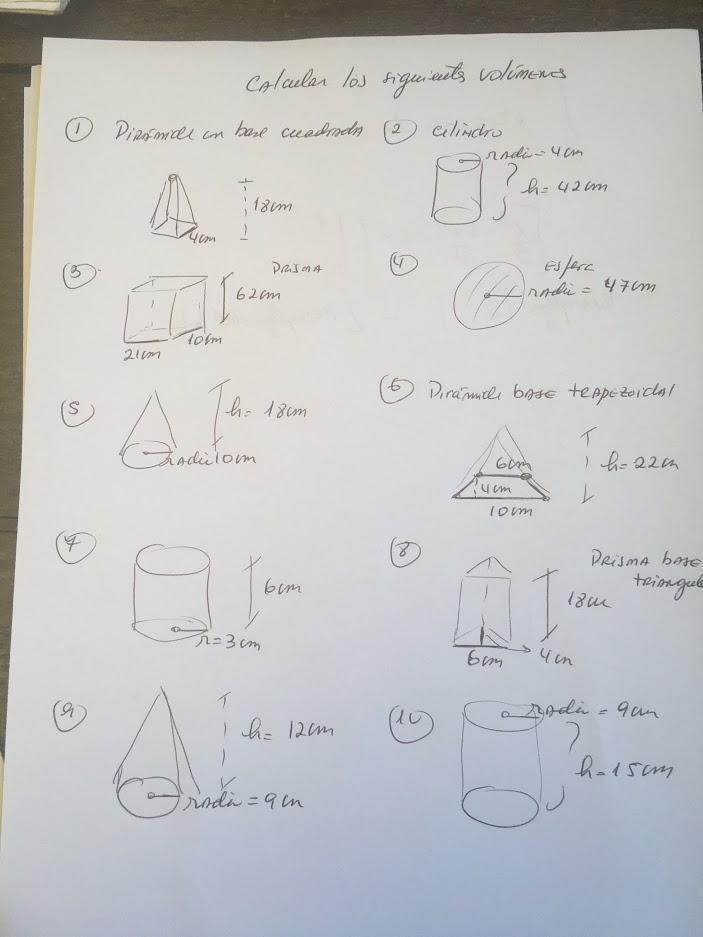 Calcular los siguientes volúmenes
① Pirámide con base cuadrada
18cm
4cm
② Cilindro
radio = 4cm
h = 42cm
③ PRISMA
62cm
10cm
21cm
④ Esfera
radio = 47cm
⑤ h = 18cm
radio 10cm
⑥ Pirámide BASE TRAPEZOIDAL
6cm
4cm
10cm
h = 22cm
⑦ 6cm
r = 3cm
⑧ PRISMA BASE
18cm
6cm
4cm
⑨ h = 12cm
radio = 9cm
⑩ radio = 9cm
h = 15cm